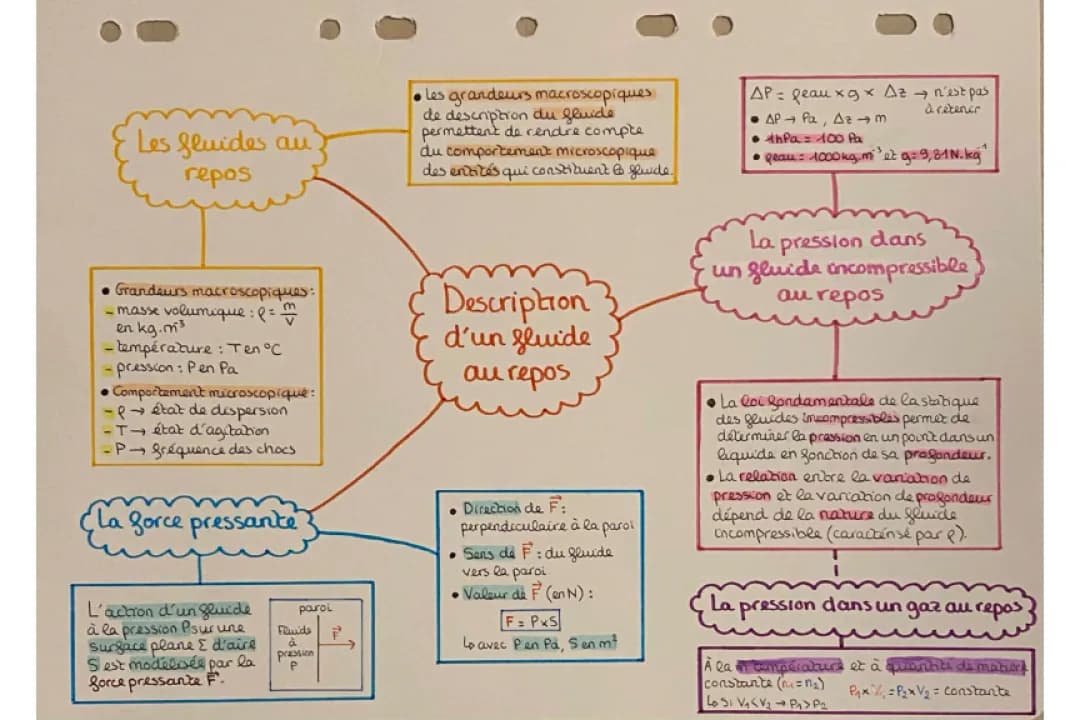 Description
d'un fluide
au repos
Les fluides au
repos
• Les grandeurs macroscopiques
de description du fluide
permettent de rendre compte
du comportement microscopique
des entités qui constituent le fluide.
• Grandeurs macroscopiques :
- masse volumique : ρ = m/V
en kg.m³
- température : T en °C
- pression : P en Pa
• Comportement microscopique :
- ρ → état de dispersion
- T → état d'agitation
- P → fréquence des chocs
La force pressante
L'action d'un fluide
à la pression P sur une
surface plane Σ d'aire
S est modélisée par la
force pressante F⃗.
paroi
Fluide
à
pression
P
F⃗
• Direction de F⃗ :
perpendiculaire à la paroi
• Sens de F⃗ : du fluide
vers la paroi
• Valeur de F⃗ (en N) :
F = P×S
↳ avec P en Pa, S en m²
La pression dans
un fluide incompressible
au repos
ΔP = ρeau × g × Δz → n'est pas
à retenir
• ΔP → Pa, Δz → m
• 1hPa = 100 Pa
• ρeau = 1000kg.m⁻³ et g = 9,81N.kg⁻¹
• La loi fondamentale de la statique
des fluides incompressibles permet de
déterminer la pression en un point dans un
liquide en fonction de sa profondeur.
• La relation entre la variation de
pression et la variation de profondeur
dépend de la nature du fluide
incompressible (caractérisé par ρ).
La pression dans un gaz au repos
À la température et à quantité de matière
constante (n₁=n₂) P₁× =P₂×V₂ = constante
↳ Si V₁<V₂ → P₁>P₂